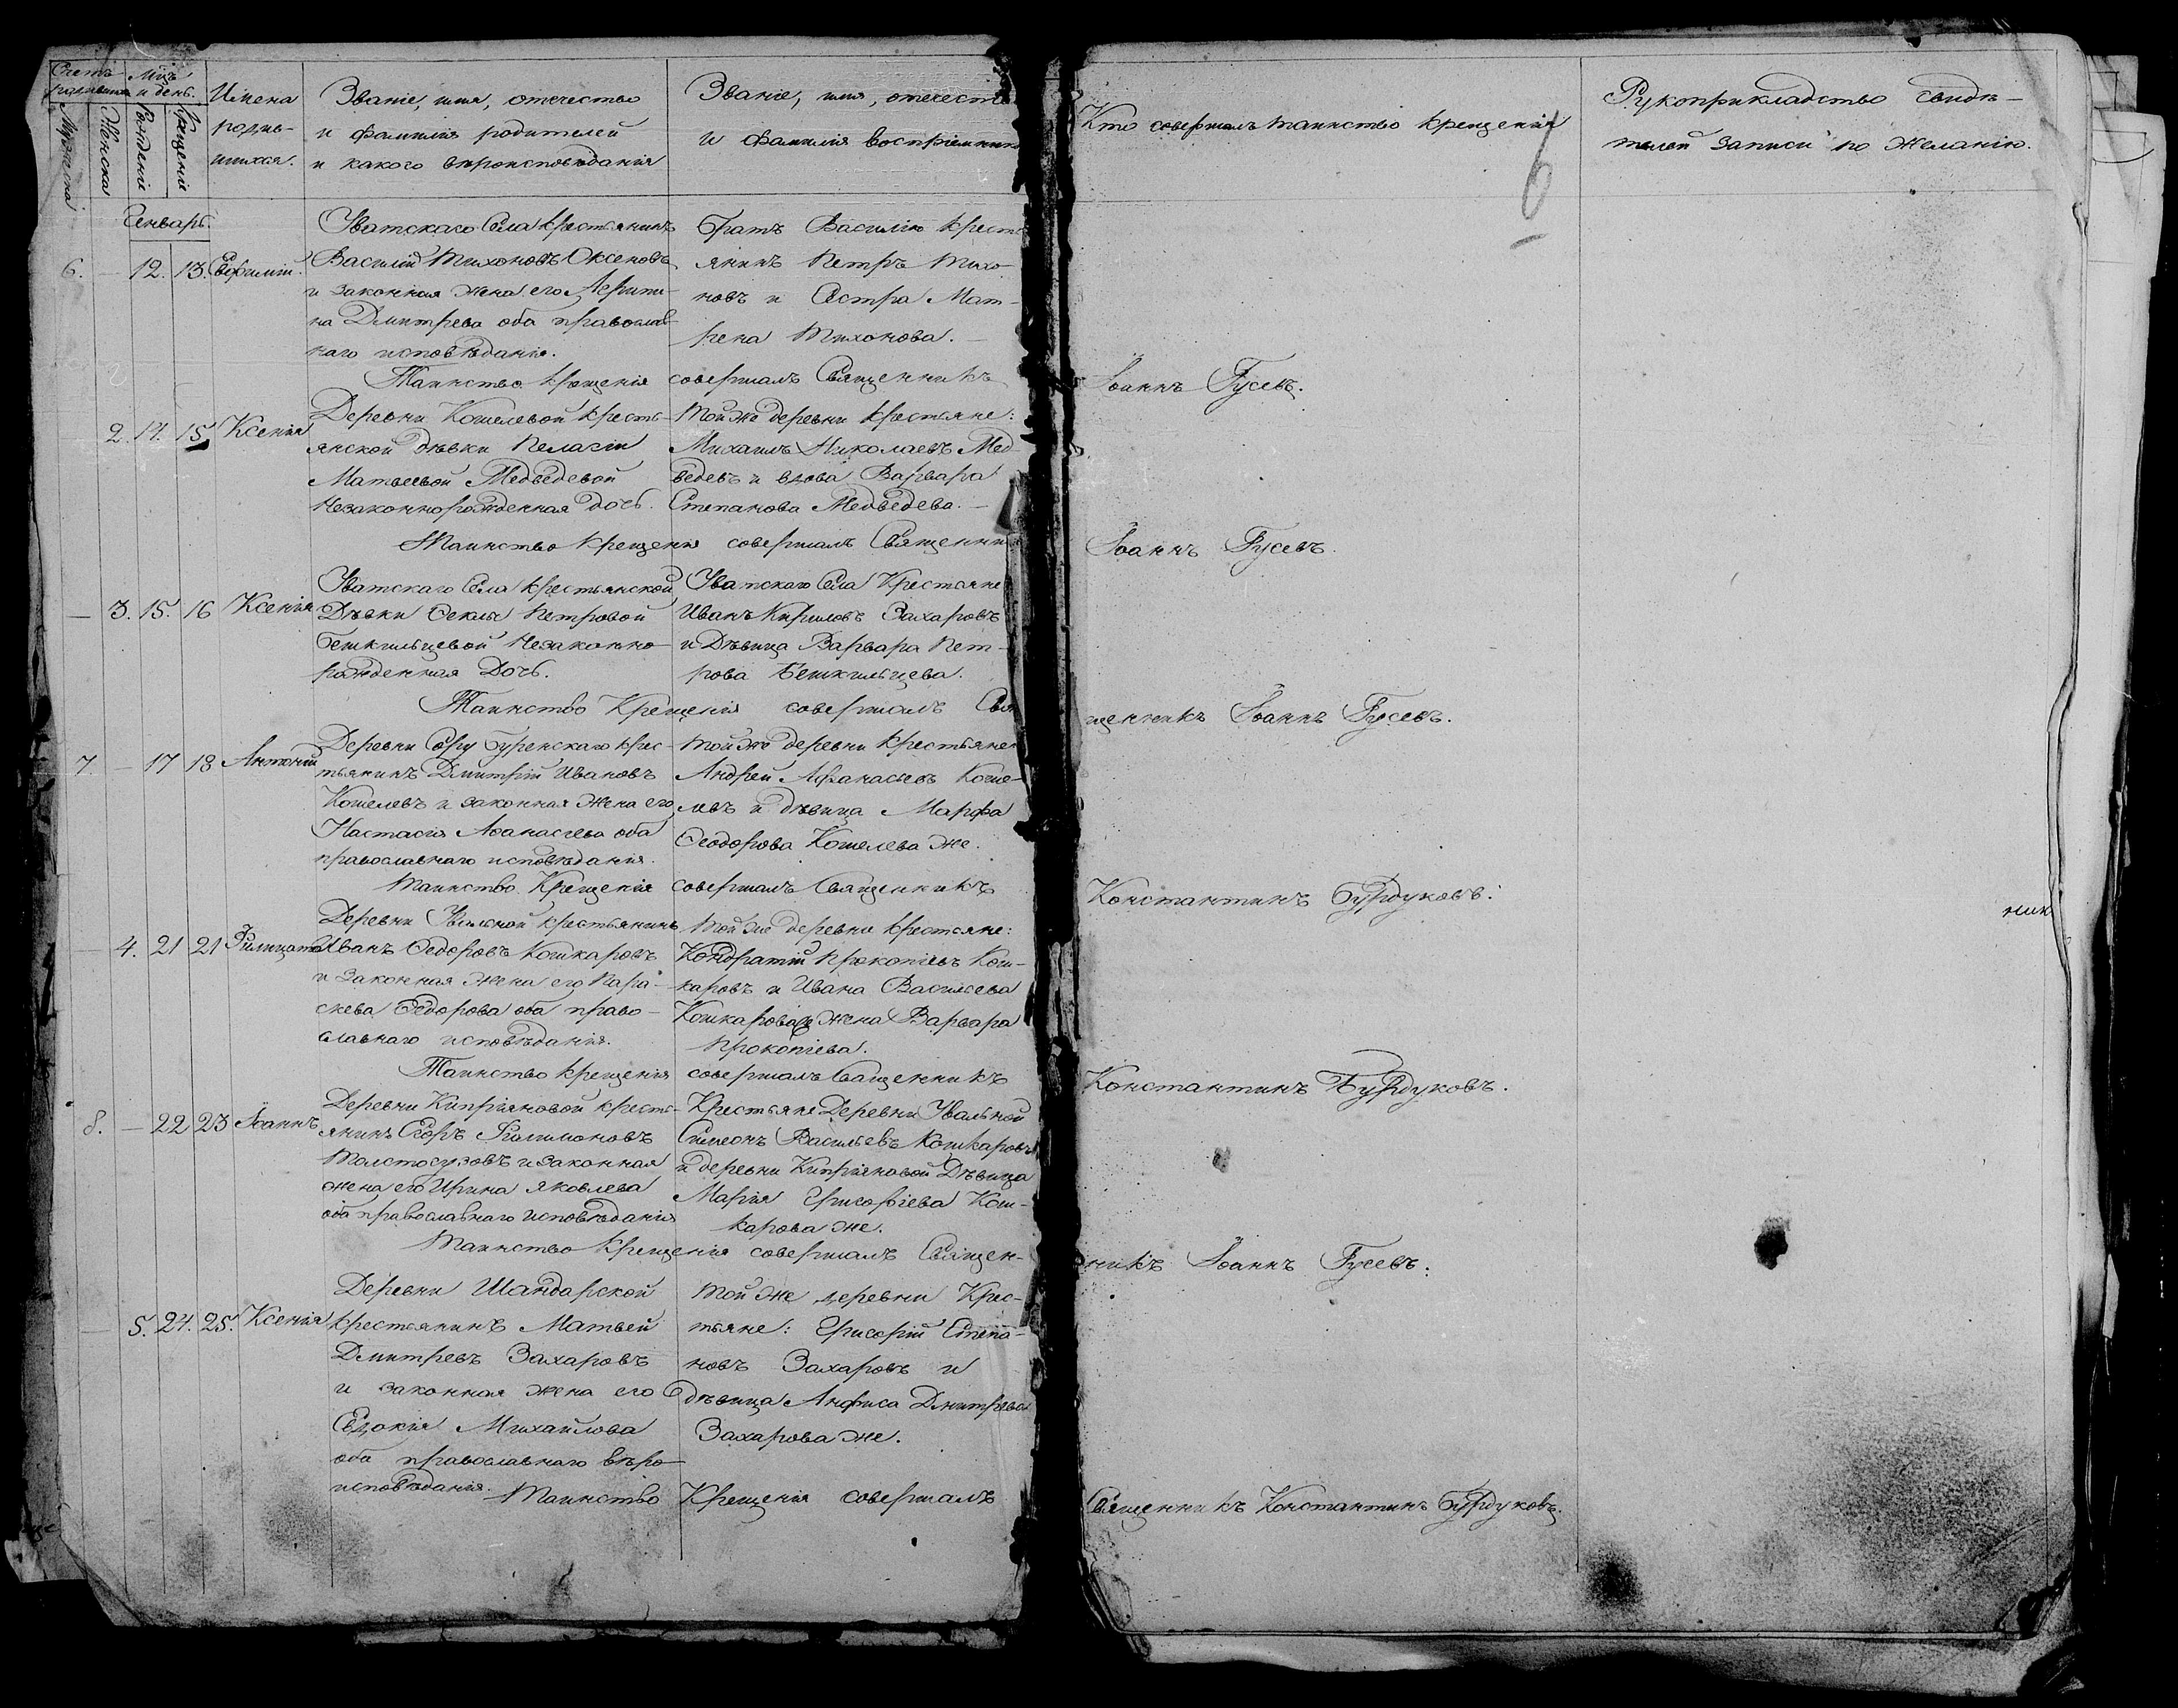 Счетъ родившихся
Мужеска
Женска
Мѣсяцъ и день.
Рожденія
Крещенія
Имена
родив-
шихся.
Званіе, имя, отечество
и фамилія родителей
и какого вѣроисповѣданія
Званіе, имя, отечество
и фамилія воспріемник
Кто совершалъ таинство крещенія
Рукоприкладство свидѣ-
телей записи по желанію.
6
Генварь.
6. — 12. 13. Евфимій.
Уватскаго Села крестьянинъ
Василій Тихоновъ Оксеновъ
и законная жена его
на Дмитрева оба православ-
наго исповѣданія.
Братъ Василію кресть
янинъ Петръ Тихо-
новъ и Сестра Мат-
рена Тихонова. —
Таинство крещенія совершалъ Священникъ
Іоаннъ Гусевъ.
2. 14. 15. Ксенія
Деревни Кошелевой кресть-
янской дѣвки Пелагіи
Матвеевой Медвѣдевой
Незаконнорожденная дочь.
Той же деревни крестьяне:
Михаилъ Николаевъ Мед-
ведевъ и вдова Варвара
Степанова Медведева. —
Таинство крещенія совершалъ Священникъ
Іоаннъ Гусевъ.
— 3. 15. 16 Ксенія
Уватскаго Села крестьянской
Дѣвки Феклы Петровой
Бешкильцевой Незаконно-
рожденная Дочь.
Уватскаго Села Крестьяне
Иванъ Кириловъ Захаровъ
и Дѣвица Варвара Пет-
рова Бешкильцева.
Таинство Крещенія совершалъ Свя
щенникъ Іоаннъ Гусевъ.
7. — 17 18 Антоній
Деревни Буренскаго крес-
тьянинъ Дмитрій Ивановъ
Кошелевъ и законная жена его
Настасія Афанасьева оба
православнаго исповѣданія.
Той же деревни крестьяне
Андрей Афанасьевъ Коше-
левъ и дѣвица Марфа
Феодорова Кошелева же.
Таинство Крещенія совершалъ Священникъ
Константинъ Бурдуковъ.
ник
— 4. 21 21 Филицата
Деревни Увальной крестьянинъ
Иванъ Федоровъ Кошкаровъ
и Законная жена его Пара-
скева Федорова оба право-
славнаго исповѣданія.
Той же деревни крестьяне:
Кондратій Прокопьевъ Кош-
каровъ и Ивана Васильева
Кошкарова жена Варвара
Прокопіева.
Таинство крещенія совершалъ Священникъ
Константинъ Бурдуковъ.
8. — 22 23 Іоаннъ
Деревни Кипріяновой кресть-
янинъ Егоръ Филимоновъ
Толстогузовъ и законная
жена его Ирина Яковлева
оба православнаго исповѣданія
Крестьяне Деревни Увальной
Симеонъ Васильевъ Кошкаровъ
и деревни Кипріяновой Дѣвица
Марія Григорьева Кош-
карова же.
Таинство крещенія совершалъ Священ-
никъ Іоаннъ Гусевъ.
— 5. 24. 25. Ксенія
Деревни Шандарской
крестьянинъ Матвей
Дмитревъ Захаровъ
и законная жена его
Евдокія Михайлова
оба православнаго вѣро-
исповѣданія.
Той же деревни Крес-
тьяне: Григорій Степа-
новъ Захаровъ и
дѣвица Анфиса Дмитрева
Захарова же.
Таинство Крещенія совершалъ
Священникъ Константинъ Бурдуковъ.